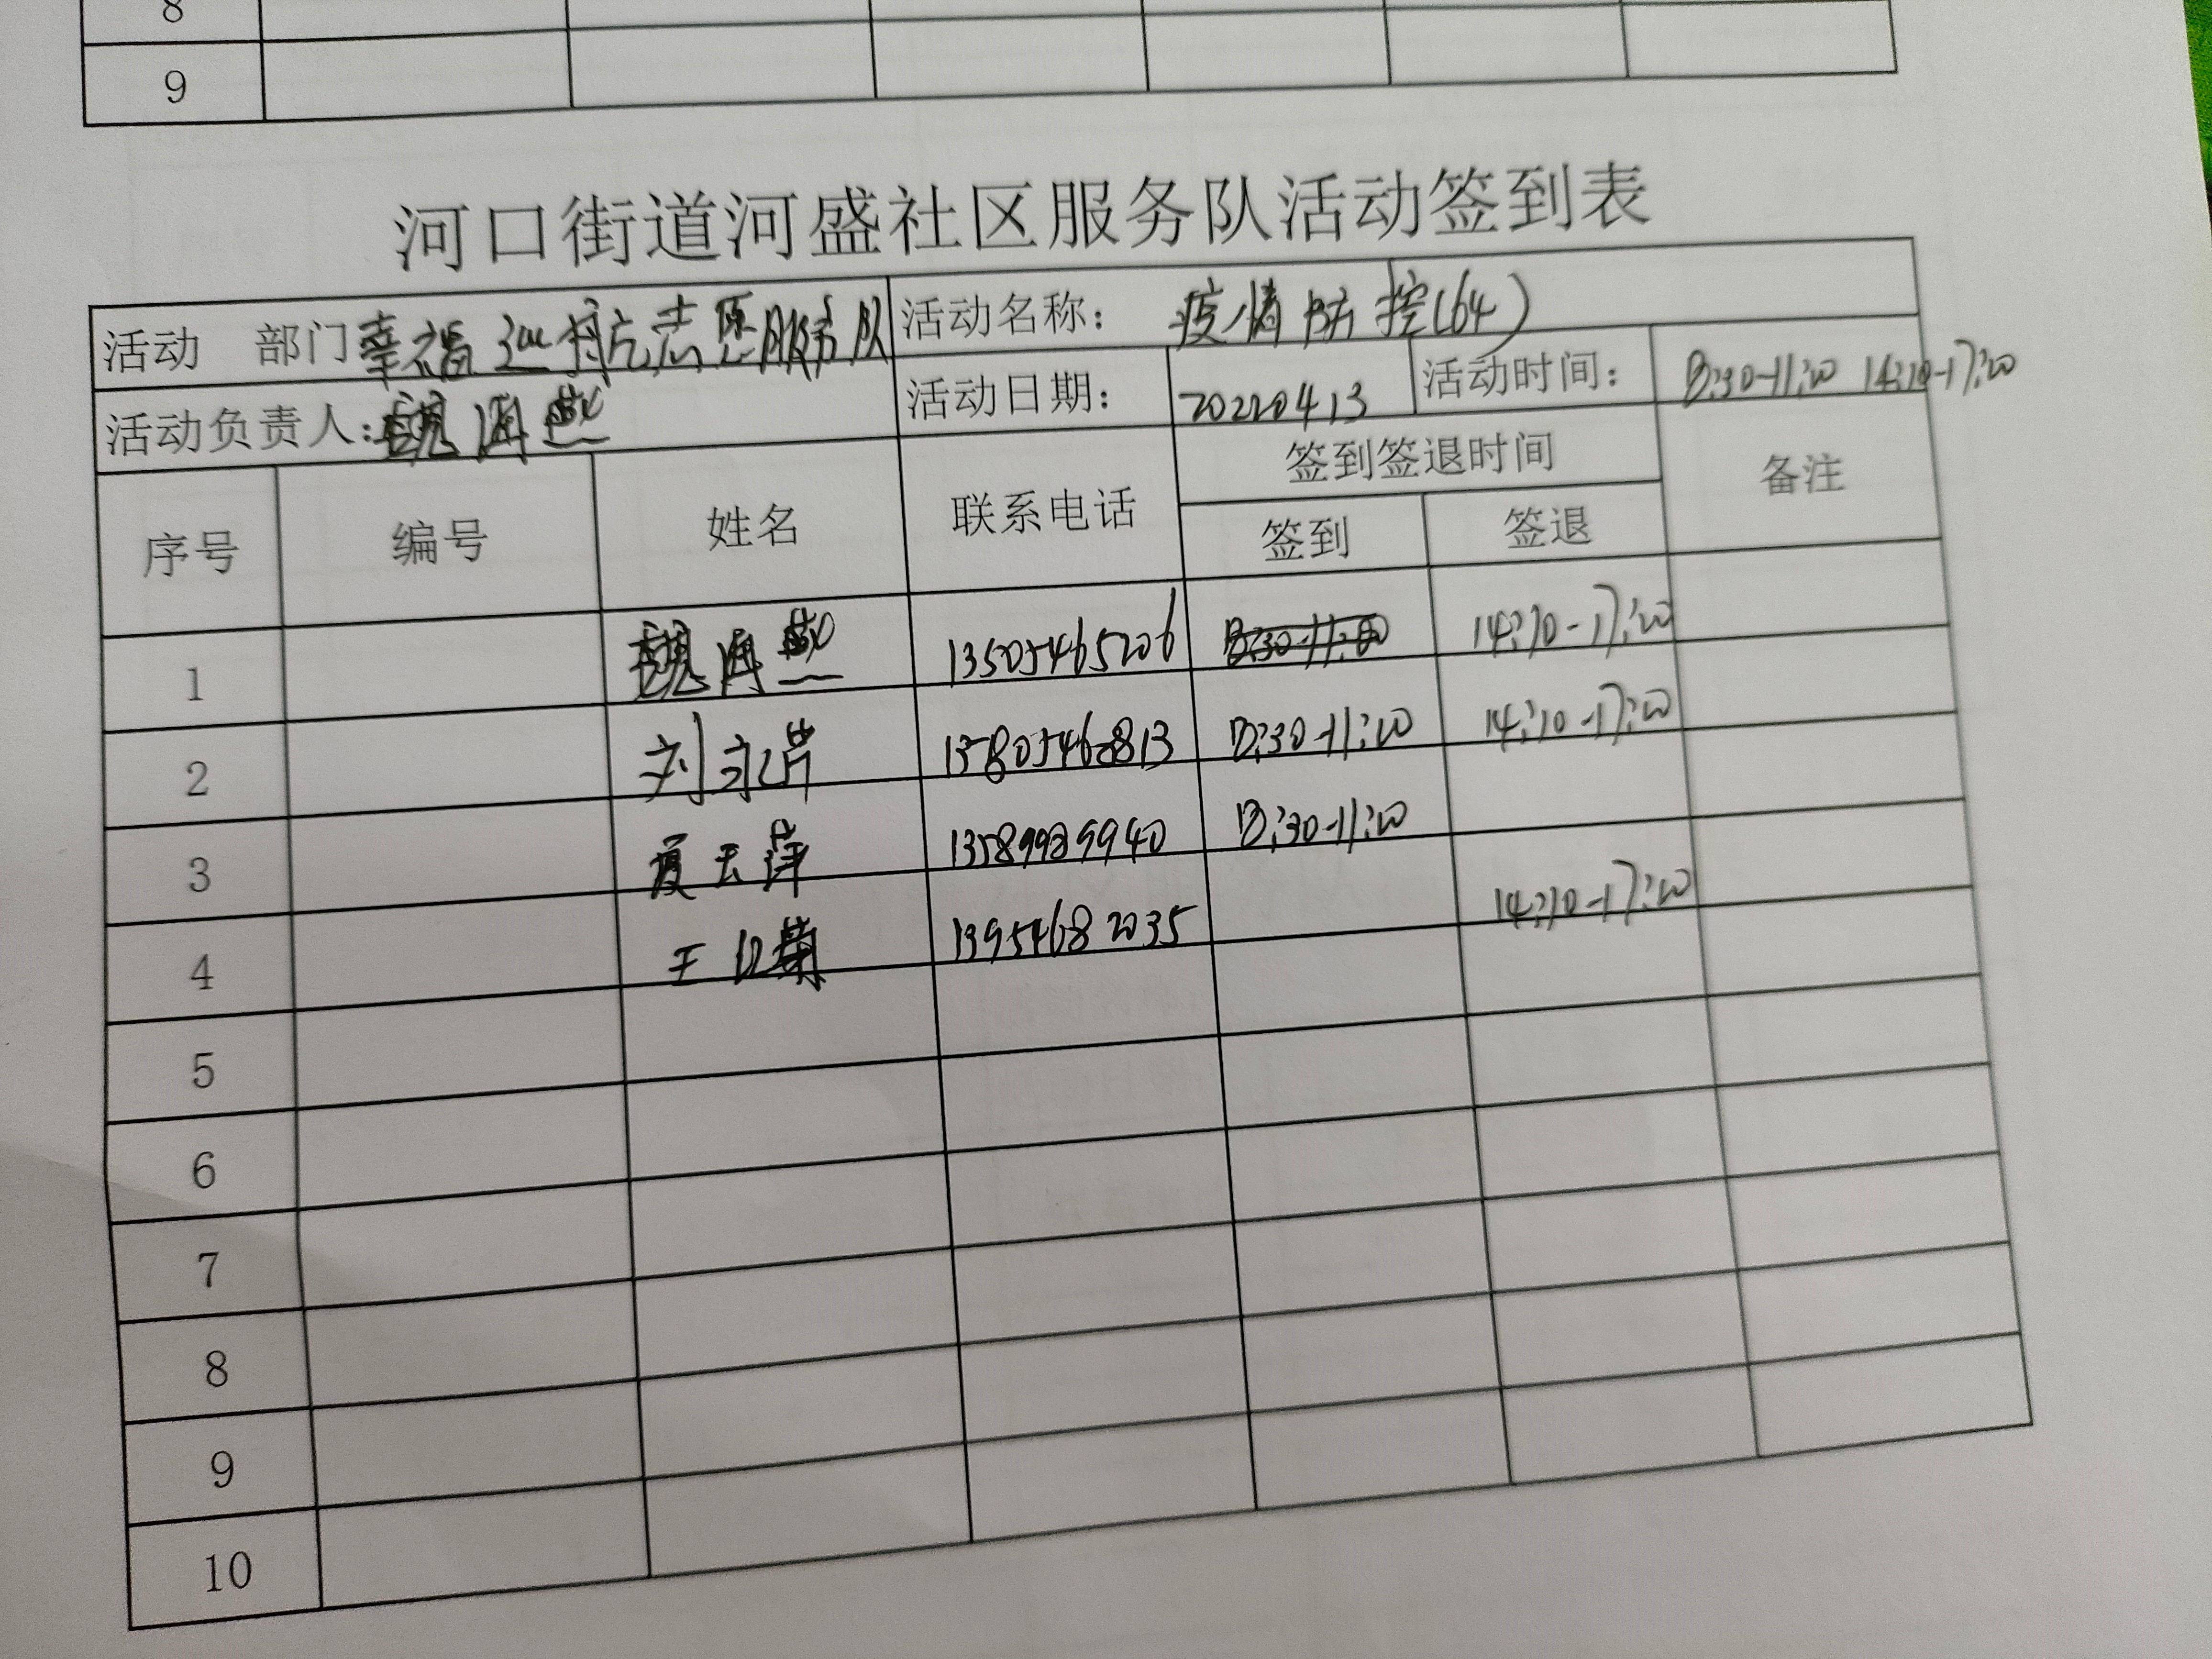 8
9
河口街道河盛社区服务队活动签到表
活动 部门 幸福 志愿服务队 活动名称： 疫情防控(64)
活动负责人： 魏海燕 活动日期： 20220413 活动时间： 8:30-11:20 14:10-17:20
序号 编号 姓名 联系电话 签到签退时间 备注
签到 签退
1 魏海燕 13505465206 14:10-17:20
2 刘永芹 8:30-11:20 14:10-17:20
3 夏玉萍 13589989940 8:30-11:20
4 王 菊 13954682035 14:10-17:20
5
6
7
8
9
10